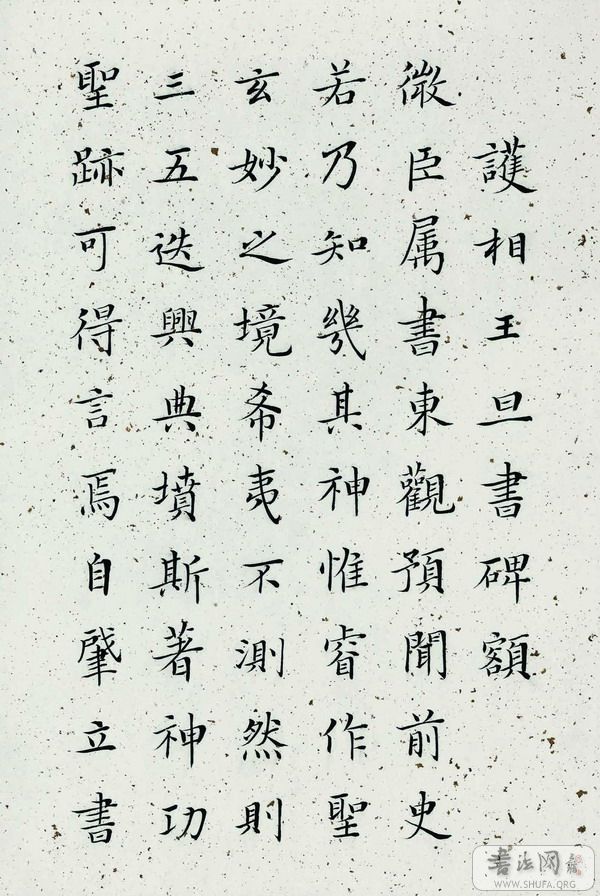 護相王旦書碑額
微臣属書東觀預聞前史
若乃知幾其神惟睿作聖
玄妙之境希夷不測然則
三五迭興典墳斯著神功
聖跡可得言焉自肇立書
書法网
WWW.SHUFA.ORG